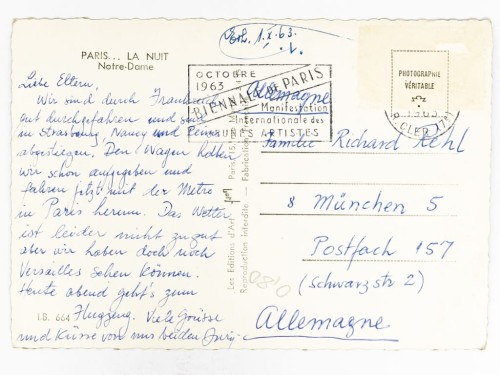 Erh. 1.X.63.
PARIS... LA NUIT
Notre-Dame
OCTOBRE
1963
BIENNALE DE PARIS
Manifestation
Internationale des
JEUNES ARTISTES
PHOTOGRAPHIE
VÉRITABLE
R. CLER (7e)
Allemagne
Liebe Eltern,
Wir sind durch Frankreich
gut durchgefahren und sind
in Strasbourg, Nancy und Reims
abgestiegen. Den Wagen haben
wir schon abgegeben und
fahren jetzt mit der Metro
in Paris herum. Das Wetter
ist leider nicht zu gut
aber wir haben doch noch
Versailles sehen können.
Heute abend geht's zum
Flugzeug. Viele Grüsse
und Küsse von uns beiden
I.B. 664
Les Editions d'Art
Reproduction Interdite. — Fabrication
Familie Richard Kehl
8 München 5
Postfach 157
(Schwarzstr 2)
Allemagne